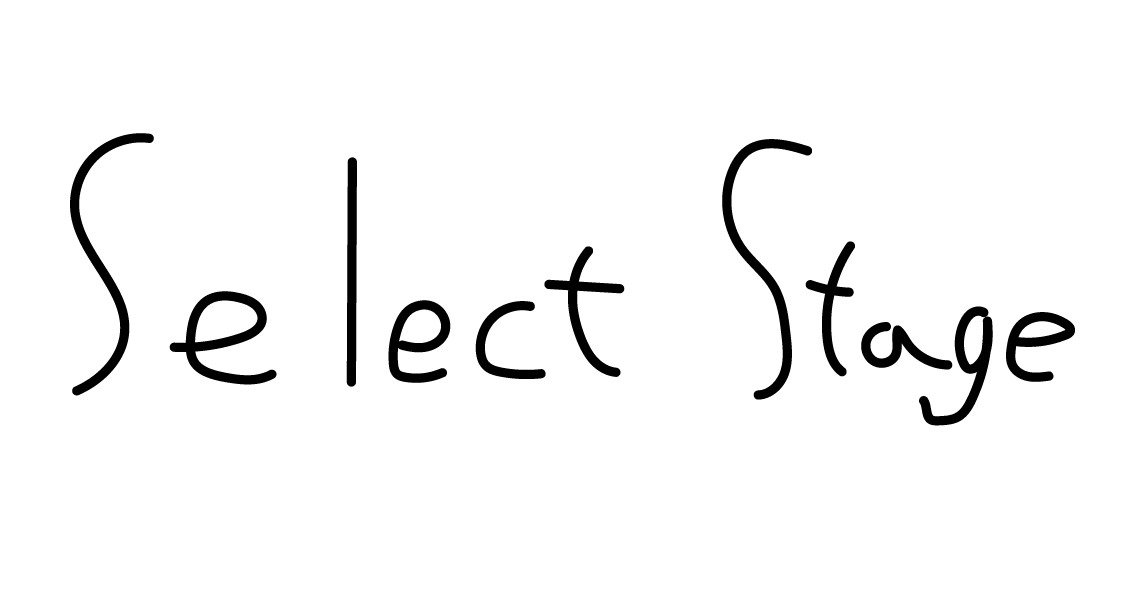 Select Stage